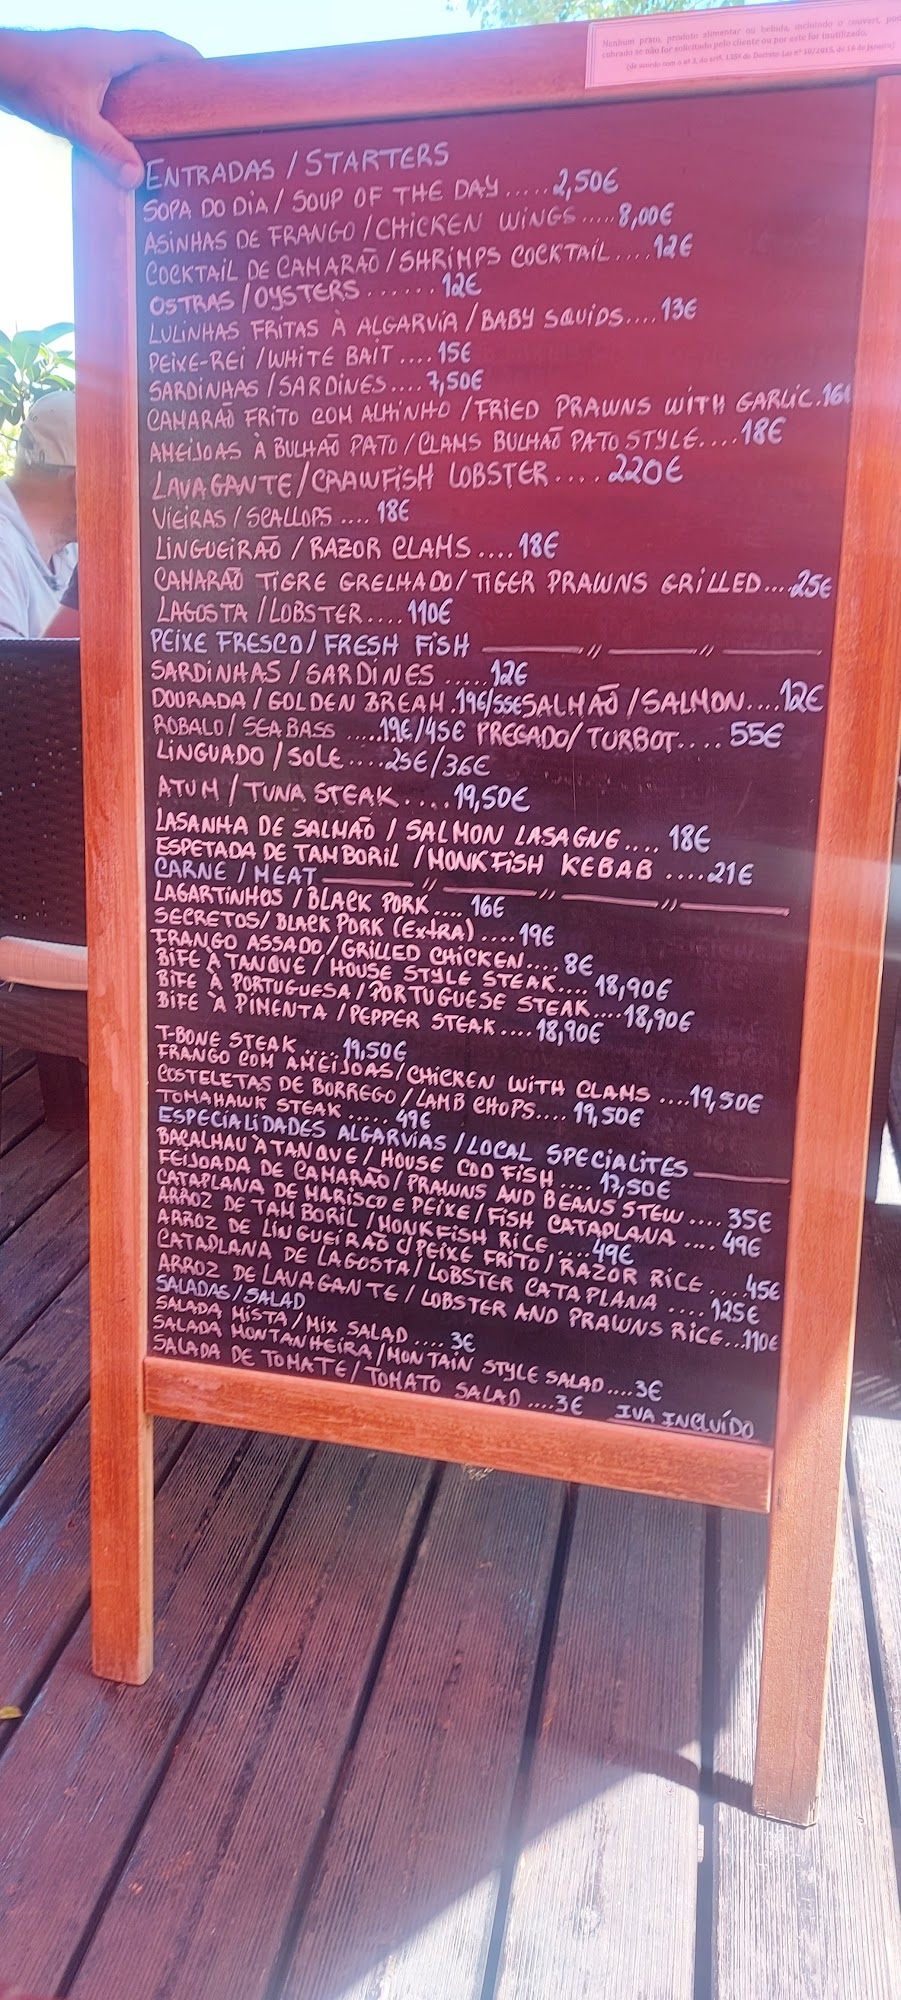 Nenhum prato, produto alimentar ou bebida, incluindo o couvert, pode
cobrado se não for solicitado pelo cliente ou por este for inutilizado.
(de acordo com o nº 3, do artº. 135º do Decreto-Lei nº 10/2015, de 16 de janeiro)
ENTRADAS / STARTERS
SOPA DO DIA / SOUP OF THE DAY.....2,50€
ASINHAS DE FRANGO / CHICKEN WINGS.....8,00€
COCKTAIL DE CAMARÃO / SHRIMPS COCKTAIL....12€
OSTRAS / OYSTERS......12€
LULINHAS FRITAS À ALGARVIA / BABY SQUIDS....13€
PEIXE-REI / WHITE BAIT....15€
SARDINHAS / SARDINES....7,50€
CAMARÃO FRITO COM ALHINHO / FRIED PRAWNS WITH GARLIC.16€
AMEIJOAS À BULHÃO PATO / CLAMS BULHÃO PATO STYLE....18€
LAVAGANTE / CRAWFISH LOBSTER....220€
VIEIRAS / SCALLOPS....18€
LINGUEIRÃO / RAZOR CLAMS....18€
CAMARÃO TIGRE GRELHADO / TIGER PRAWNS GRILLED....25€
LAGOSTA / LOBSTER....110€
PEIXE FRESCO / FRESH FISH
SARDINHAS / SARDINES.....12€
DOURADA / GOLDEN BREAM.19€/55€ SALMÃO / SALMON....12€
ROBALO / SEA BASS.....19€/45€ PREGADO / TURBOT....55€
LINGUADO / SOLE....25€/36€
ATUM / TUNA STEAK....19,50€
LASANHA DE SALMÃO / SALMON LASAGNE....18€
ESPETADA DE TAMBORIL / MONKFISH KEBAB....21€
CARNE / MEAT
LAGARTINHOS / BLACK PORK....16€
SECRETOS / BLACK PORK (EXTRA)....19€
FRANGO ASSADO / GRILLED CHICKEN....8€
BIFE À TANQUE / HOUSE STYLE STEAK....18,90€
BIFE À PORTUGUESA / PORTUGUESE STEAK....18,90€
BIFE À PIMENTA / PEPPER STEAK....18,90€
T-BONE STEAK....19,50€
FRANGO COM AMEIJOAS / CHICKEN WITH CLAMS....19,50€
COSTELETAS DE BORREGO / LAMB CHOPS....19,50€
TOMAHAWK STEAK.....49€
ESPECIALIDADES ALGARVIAS / LOCAL SPECIALITES
BACALHAU À TANQUE / HOUSE COD FISH....17,50€
FEIJOADA DE CAMARÃO / PRAWNS AND BEANS STEW....35€
CATAPLANA DE MARISCO E PEIXE / FISH CATAPLANA....49€
ARROZ DE TAMBORIL / MONKFISH RICE....49€
ARROZ DE LINGUEIRÃO C/ PEIXE FRITO / RAZOR RICE....45€
CATAPLANA DE LAGOSTA / LOBSTER CATAPLANA....125€
ARROZ DE LAVAGANTE / LOBSTER AND PRAWNS RICE...110€
SALADAS / SALAD
SALADA MISTA / MIX SALAD....3€
SALADA MONTANHEIRA / MONTAIN STYLE SALAD....3€
SALADA DE TOMATE / TOMATO SALAD....3€ IVA INCLUÍDO